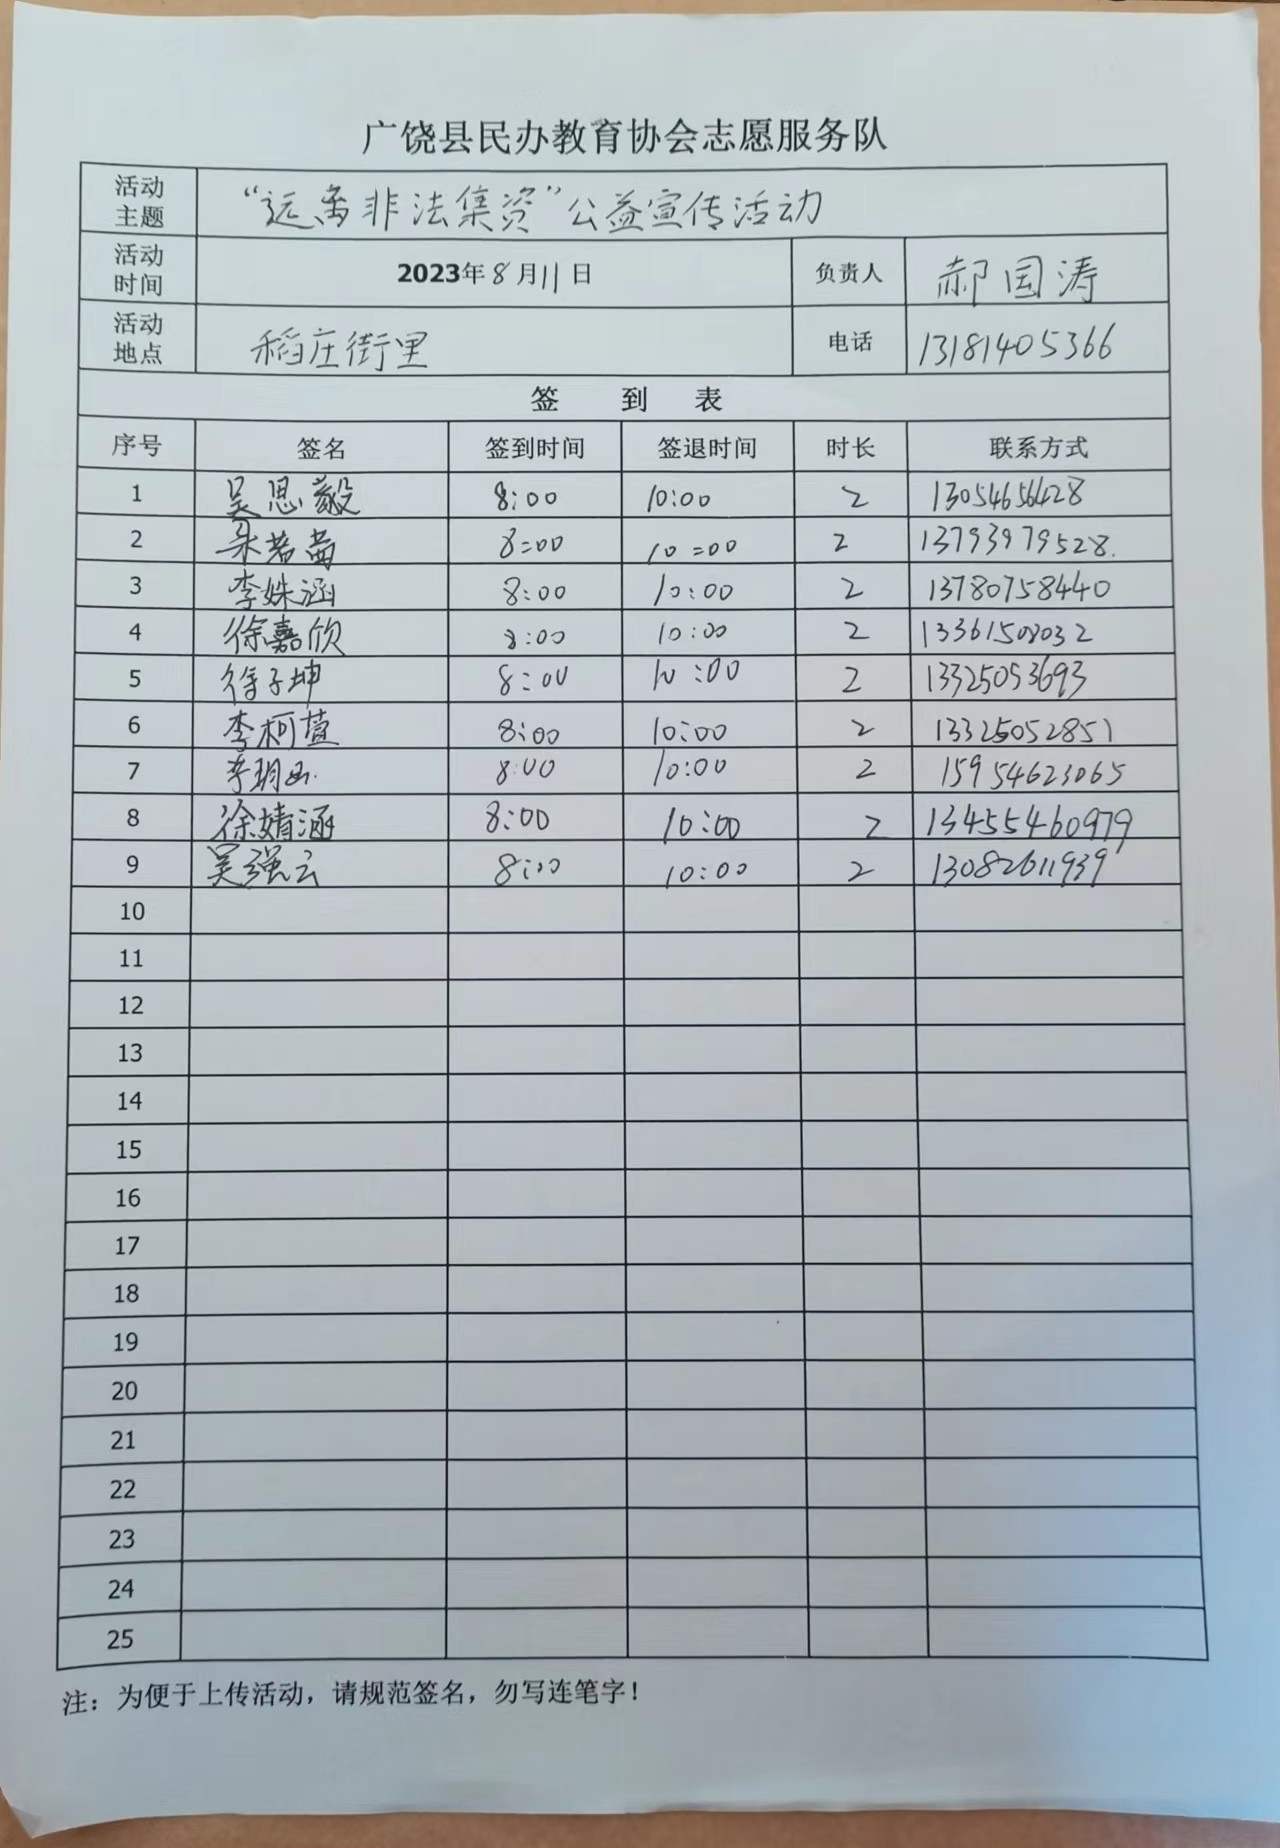 广饶县民办教育协会志愿服务队
活动主题 “远离非法集资”公益宣传活动
活动时间 2023年8月11日 负责人 郝国涛
活动地点 稻庄街里 电话 13181405366
签 到 表
序号 签名 签到时间 签退时间 时长 联系方式
1 吴思毅 8:00 10:00 2 13054656428
2 若茜 8:00 10:00 2 13793979528.
3 李姝涵 8:00 10:00 2 13780758440
4 徐嘉欣 8:00 10:00 2 13361508032
5 徐子坤 8:00 10:00 2 13325053693
6 李柯萱 8:00 10:00 2 13325052851
7 李玥 8:00 10:00 2 15954623065
8 徐婧涵 8:00 10:00 2 13455460979
9 吴强云 8:00 10:00 2 13082611939
10
11
12
13
14
15
16
17
18
19
20
21
22
23
24
25
注：为便于上传活动，请规范签名，勿写连笔字！